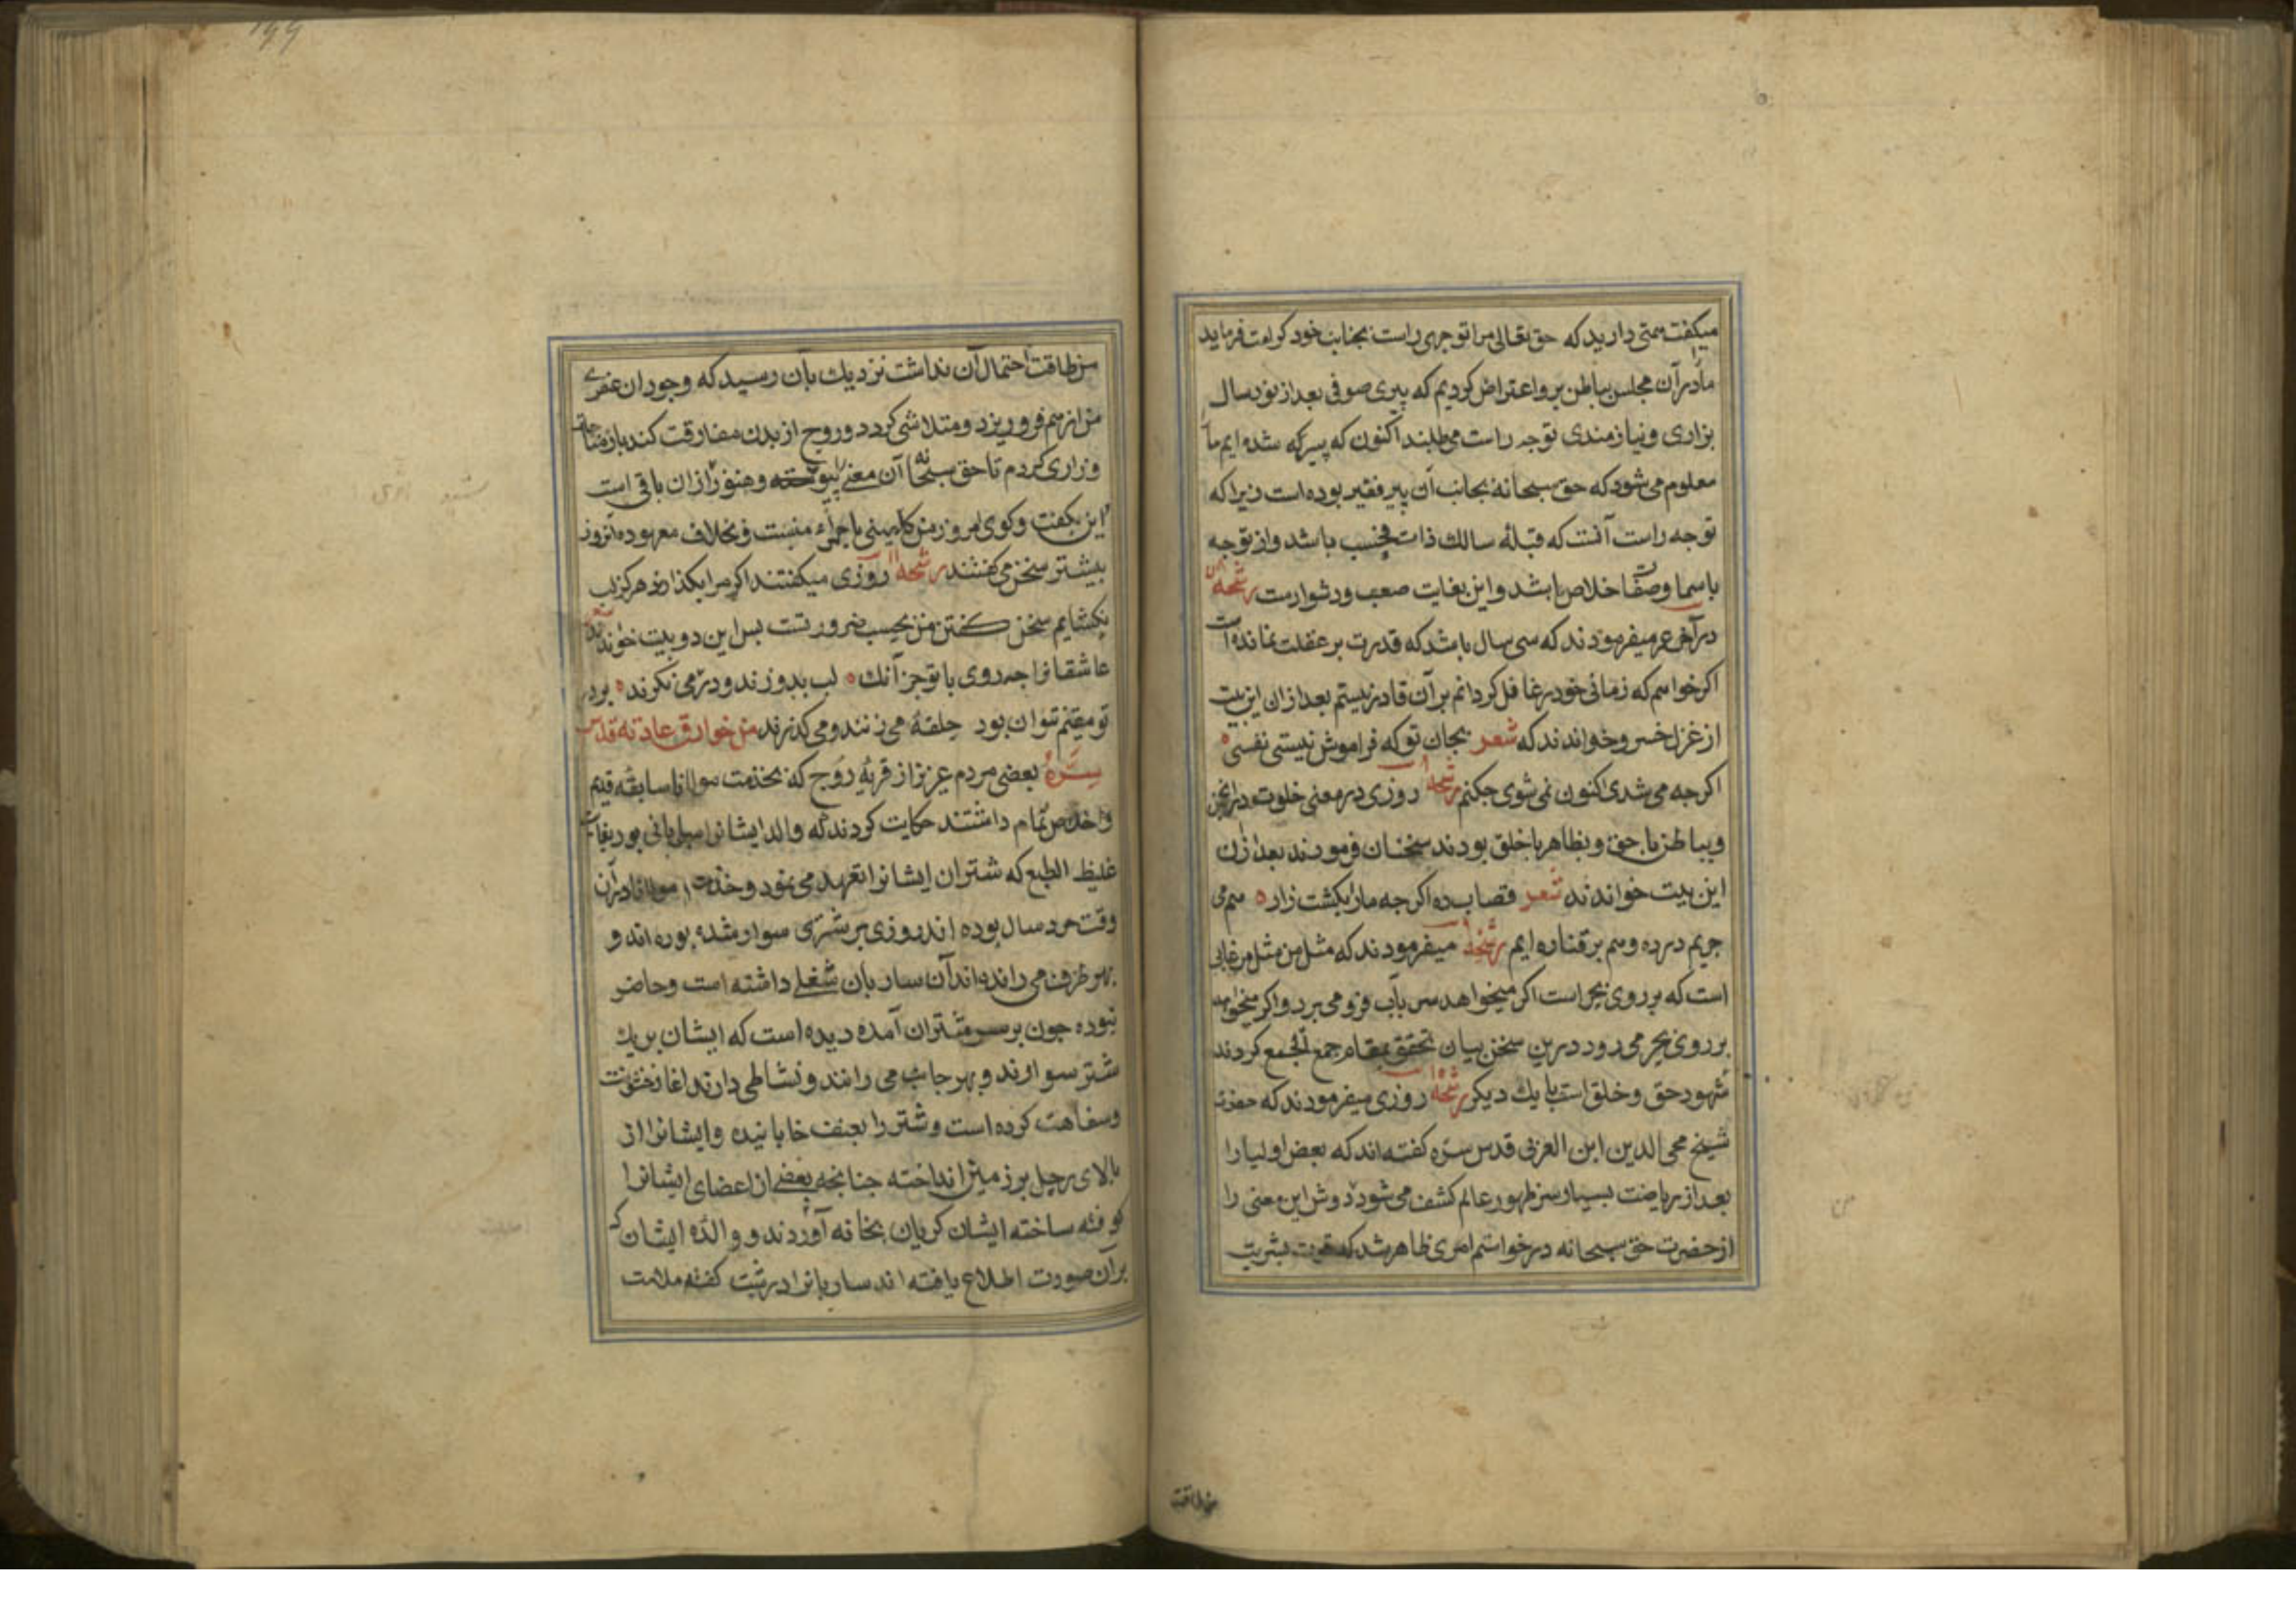 میکفت همتی دارید که حق تعالی مرا توجهی راست بجناب خود کرامت فرماید
ما در آن مجلس بباطن برو اعتراض کردیم که پیری صوفی بعد از نود سال
بزاری و نیازمندی توجه راست می‌طلبد اکنون که پیر که شده ایم ما را
معلوم می شود که حق سبحانه بجانب آن پیر فقیر بوده است زیرا که
توجه راست آنست که قبلهٔ سالک ذات بحت باشد و از توجه
باسما و صفات خلاص باشد و این بغایت صعب و دشوارست رشحه
در آخر عمر میفرمودند که سی سال باشد که قدرت بر غفلت نمانده است
اکر خواهم که زمانی خود را غافل کردانم بر آن قادر نیستم بعد از ان این بیت
از غزل خسرو خواندند که شعر بجان تو که فراموش نیستی نفسی
اکر چه می شدی اکنون نمی شوی چکنم رشحه روزی در معنی خلوت در انجمن
و بباطن با حق و بظاهر با خلق بودند سخنان فرمودند بعد از ان
این بیت خواندند شعر قصاب ده اکر چه ما را بکشت زار هم می
چریم در ده و هم بر قناره ایم رشحه میفرمودند که مثل من مثل مرغابی
است که بر روی بحر است اکر میخواهد سر بآب فرو می برد و اکر میخواهد
بر روی بحر می رود درین سخن بیان تحقق بمقام جمع الجمع کردند
شهود حق و خلق است با یک دیکر رشحه روزی میفرمودند که حضرت
شیخ محی الدین ابن العربی قدس سره کفته اند که بعض اولیا را
بعد از ریاضت بسیار سر ظهور عالم کشف می شود دوش این معنی را
از حضرت حق سبحانه درخواستم امری ظاهر شد که قوت بشریت
من طاقت
من طاقت احتمال آن نداشت نزدیک بآن رسید که وجود ان عنصری
من از هم فرو ریزد و متلاشی کردد و روح از بدن مفارقت کند باز مناجات
و زاری کردم تا حق سبحانه آن معنی را و هنوز از ان باقی است
این بکفت و کوی امروز من ماجراء منست و بخلاف معهوده انروز
بیشتر سخن می کفتند رشحه روزی میکفتند اکر مرا بکذارند هرکز لب
نکشایم سخن کفتن من بحسب ضرورتست بس این دو بیت خواندند شعر
عاشقانرا چه روی با تو جز آنک لب بدوزند و در تو می نکرند بر در
تو مقیم نتوان بود حلقهٔ می زنند و می کذرند من خوارق عاداته قدس
سره بعضی مردم عزیز از قریهٔ روج که بخدمت مولانا سابقه قدیم
و اخلاص تمام داشتند حکایت کردند که والد ایشانرا ساربانی بود بغایت
غلیظ الطبع که شتران ایشانرا تعهد می نمود و خدمت مولانا در آن
وقت خرد سال بوده اند روزی بر شتری سوار شده بوده اند و
بهر طرف می رانده اند آن ساربان شغلی داشته است و حاضر
نبوده چون بر سر شتران آمده دیده است که ایشان بر یک
شتر سوارند و بهر جانب می رانند و نشاطی دارند اغاز خشونت
و سفاهت کرده است و شتر را بعنف خابانیده و ایشانرا از
بالای رحل بر زمین انداخته چنانچه بعضی از اعضای ایشانرا
کوفته ساخته ایشان کریان بخانه آوردند و والدهٔ ایشان که
بر آن صورت اطلاع یافته اند ساربانرا درشت کفته ملامت